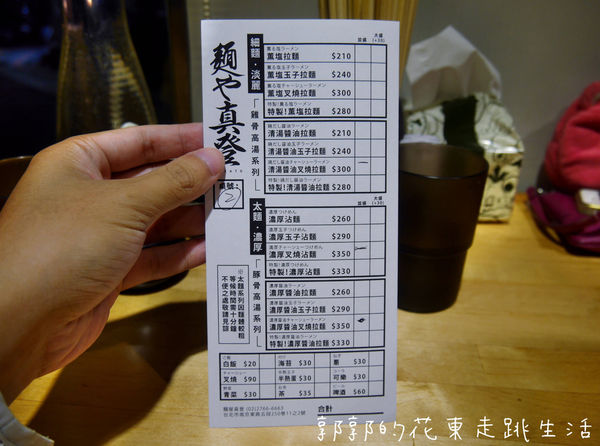 麵や真登
桌號：
2
細麵・淡麗「雞骨高湯系列」
並盛
大盛
(+30)
薰る塩ラーメン
薰塩拉麵 $210
薰る塩玉子ラーメン
薰塩玉子拉麵 $240
薰る塩チャーシューラーメン
薰塩叉燒拉麵 $300
特製!薰る塩ラーメン
特製!薰塩拉麵 $280
鶏だし醤油ラーメン
清湯醬油拉麵 $210
鶏だし醤油玉子ラーメン
清湯醬油玉子拉麵 $240
鶏だし醤油チャーシューラーメン
清湯醬油叉燒拉麵 $300
特製!鶏だし醤油ラーメン
特製!清湯醬油拉麵 $280
太麵・濃厚「豚骨高湯系列」
並盛
大盛
(+30)
濃厚つけめん
濃厚沾麵 $260
濃厚玉子つけめん
濃厚玉子沾麵 $290
濃厚チャーシューつけめん
濃厚叉燒沾麵 $350
特製!濃厚つけめん
特製!濃厚沾麵 $330
濃厚醤油ラーメン
濃厚醬油拉麵 $260
濃厚醤油玉子ラーメン
濃厚醬油玉子拉麵 $290
濃厚醤油チャーシューラーメン
濃厚醬油叉燒拉麵 $350
特製!濃厚醤油ラーメン
特製!濃厚醬油拉麵 $330
※太麵系列因麵體較粗
等候時間需十分鐘
不便之處敬請見諒
ご飯
白飯 $20
海苔 $30
ねぎ
蔥 $30
チャーシュー
叉燒 $90
半熟玉子
半熟蛋 $30
コーラ
可樂 $30
野菜
青菜 $30
お茶
茶 $35
ビール
啤酒 $60
麵屋真登 (02)2766-6663
台北市南京東路五段250巷11-2號
合計
郭郭的花東走跳生活